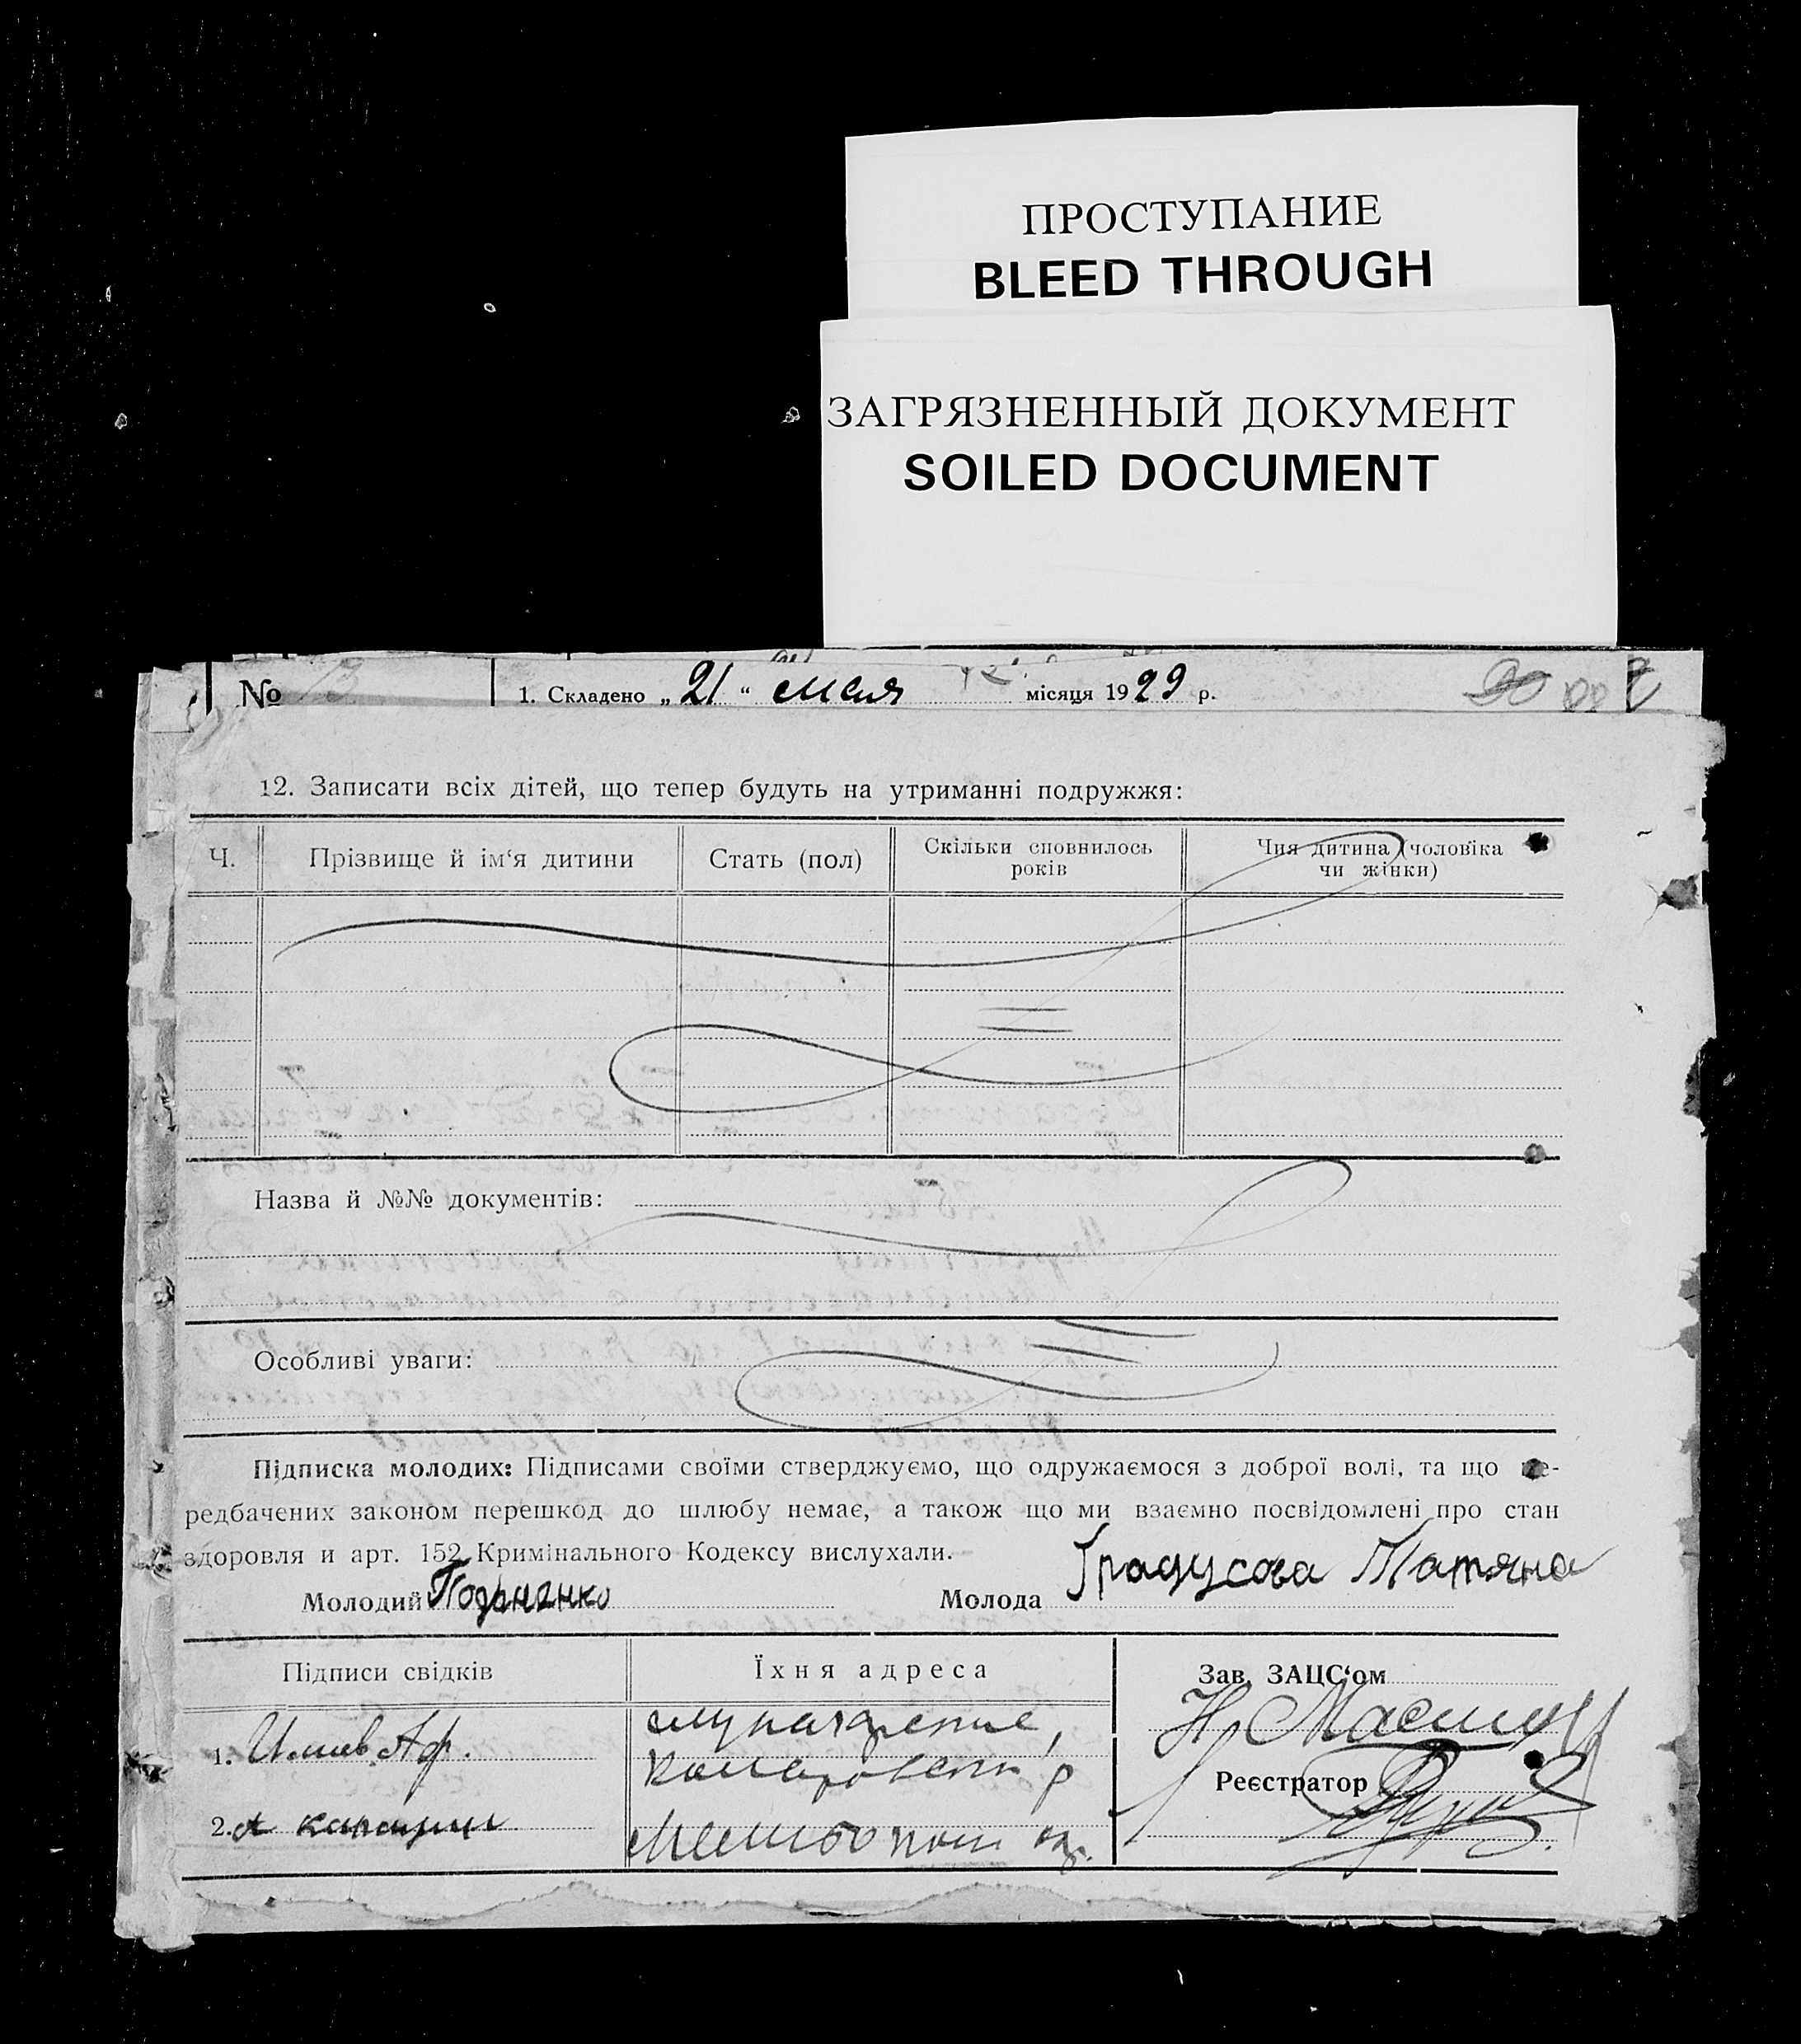 ПРОСТУПАНИЕ
BLEED THROUGH
ЗАГРЯЗНЕННЫЙ ДОКУМЕНТ
SOILED DOCUMENT
№ 1. Складено „21“ мая місяця 1929 р.
12. Записати всіх дітей, що тепер будуть на утриманні подружжя:
Ч. Прізвище й ім‘я дитини Стать (пол) Скільки сповнилось років Чия дитина (чоловіка чи жінки)
Назва й №№ документів:
Особливі уваги:
Підписка молодих: Підписами своїми стверджуємо, що одружаємося з доброї волі, та що пе-
редбачених законом перешкод до шлюбу немає, а також що ми взаємно посвідомлені про стан
здоровля и арт. 152 Кримінального Кодексу вислухали.
Молодий Молода Градусова Татяна
Підписи свідків Їхня адреса Зав. ЗАЦС‘ом
1.
Реєстратор
2.